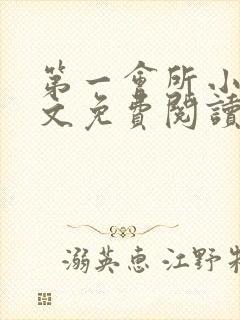 第一會所小
文免費閱讀
溺英惠 江野牧